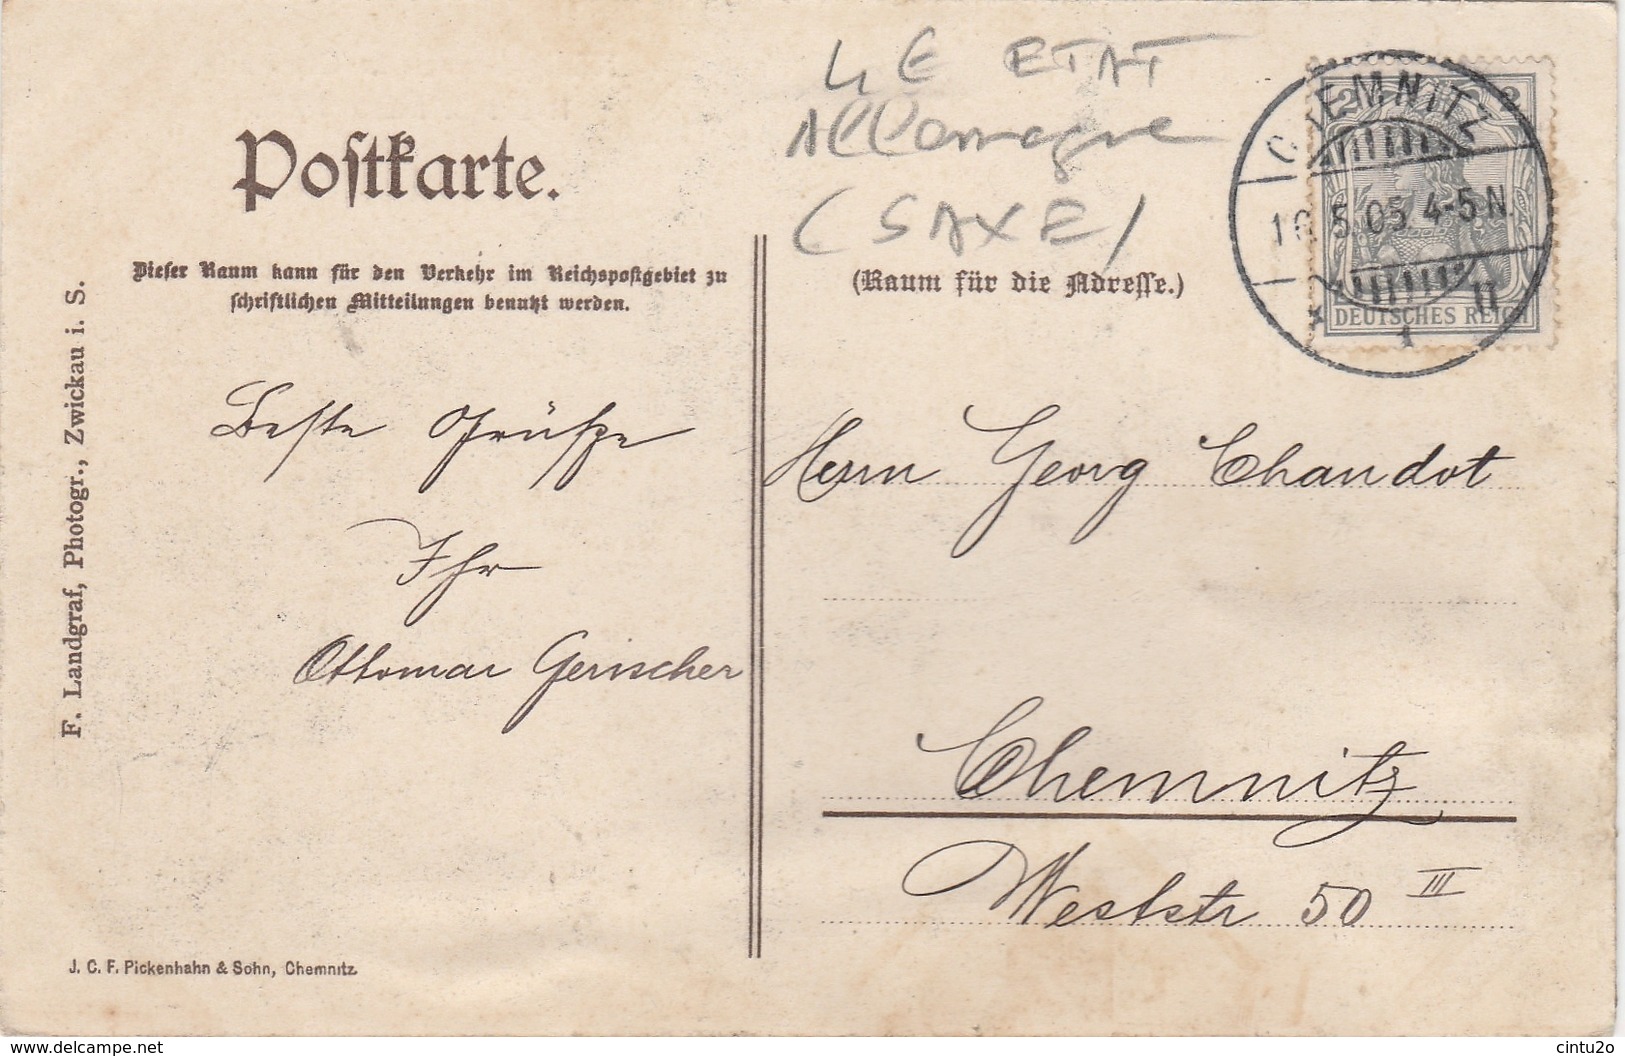 Postkarte.
Dieser Raum kann für den Verkehr im Reichspostgebiet zu
schriftlichen Mitteilungen benutzt werden.
F. Landgraf, Photogr., Zwickau i. S.
Beste Grüße
Ihr
Ottomar Gerischer
J. C. F. Pickenhahn & Sohn, Chemnitz
ETAT
Allemagne
(SAXE)
(Raum für die Adresse.)
CHEMNITZ
5.05. 4-5 N.
1
2 2
DEUTSCHES REICH
Herrn Georg Chandot
Chemnitz
Weststr 50 III
www.delcampe.net
cintu2o